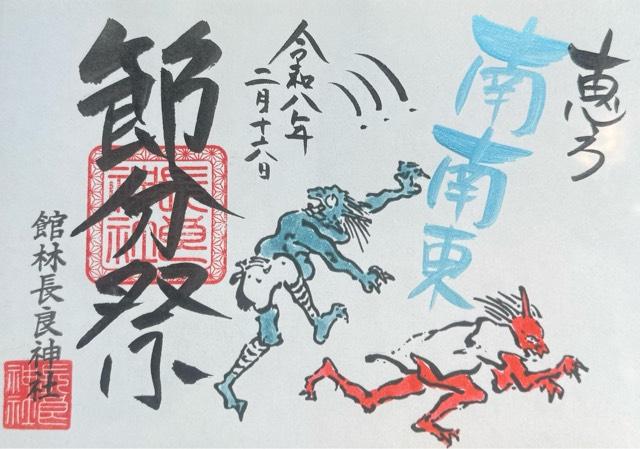 恵方
南南東
令和八年
二月十六日
節分祭
長良
神社
館林長良神社
長良
神社